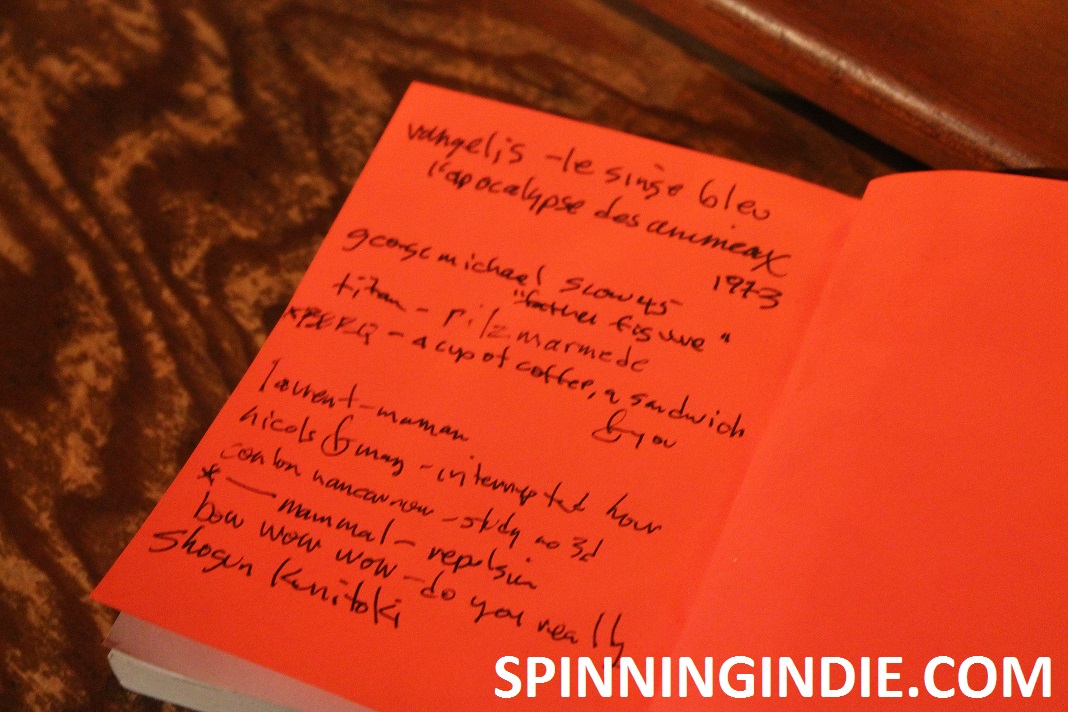 vangelis - le singe bleu
l'apocalypse des animeaux
1973
george michael slow 45
"father figure"
titan - pilzmarmede
- a cup of coffee, a sandwich
& you
laurent - maman
nicols & may - interrupted hour
conlon nancarrow - study no 3d
* — mammal - repulsion
bow wow wow - do you really
Shogun Kunitoki
SPINNINGINDIE.COM